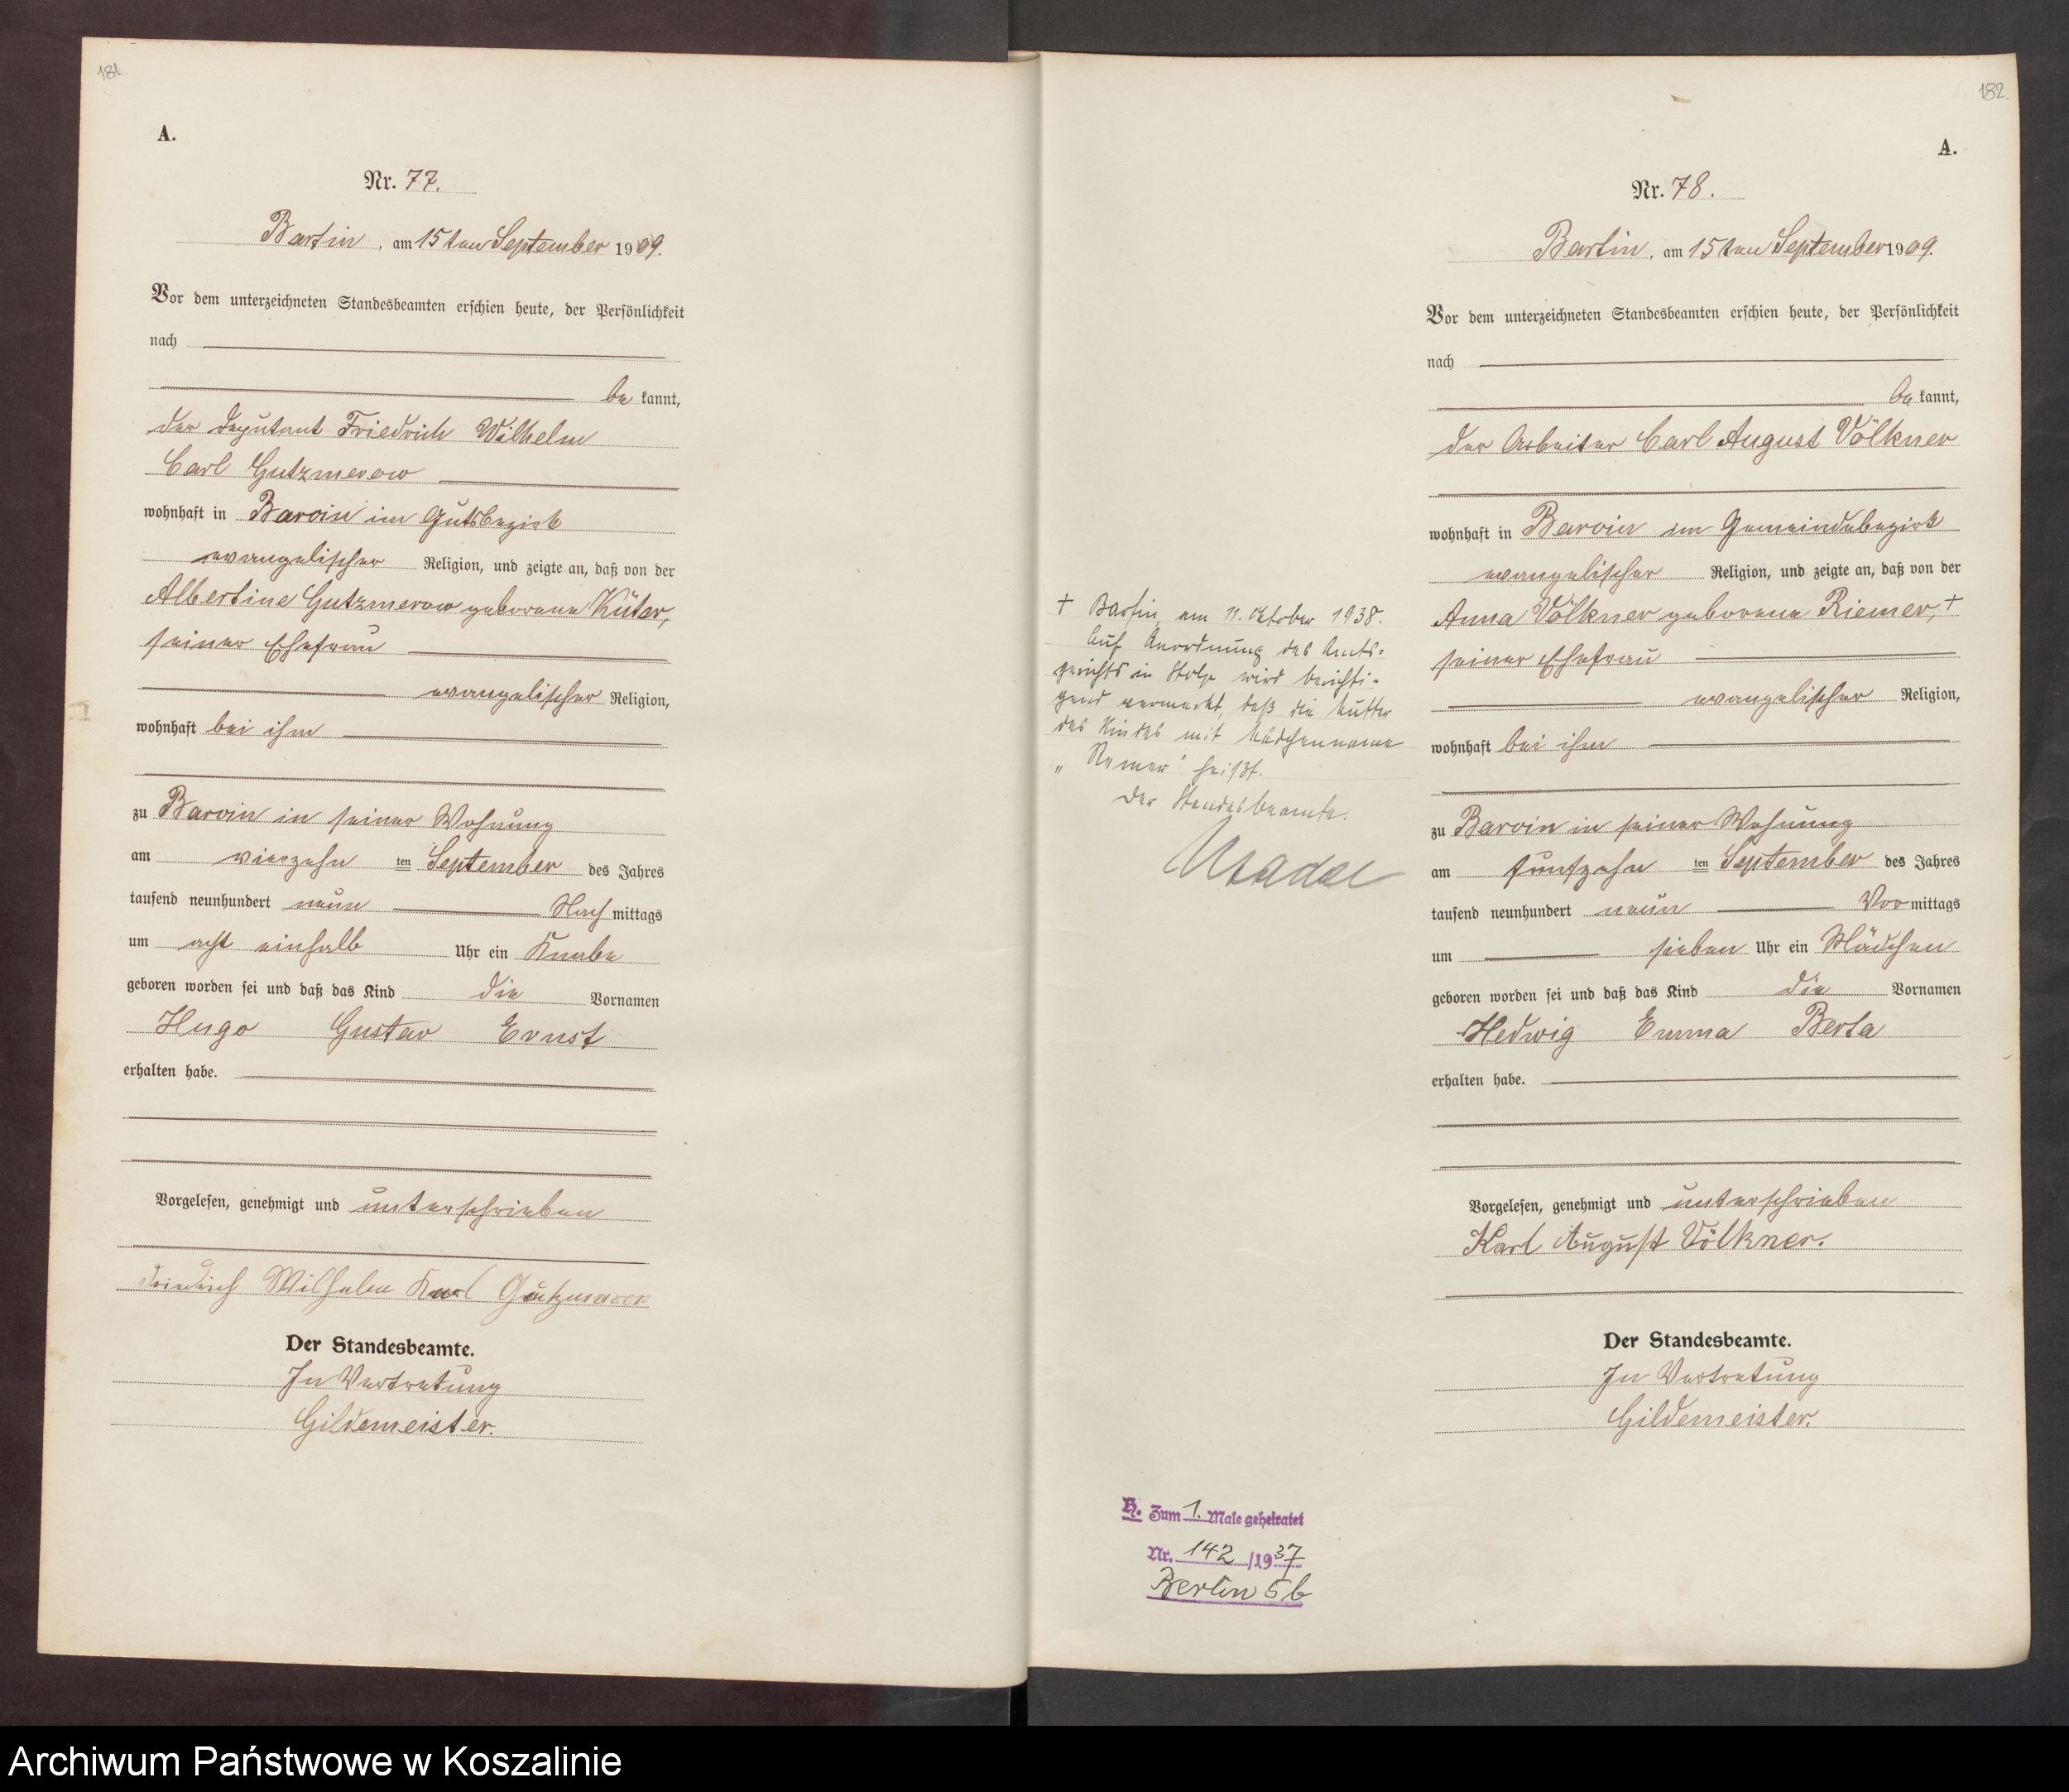 181
A.
Nr. 77.
Bartin, am 15ten September 1909.
Vor dem unterzeichneten Standesbeamten erschien heute, der Persönlichkeit
nach
be kannt,
der Deputant Friedrich Wilhelm
Carl Gutzmerow
wohnhaft in Barvin im Gutsbezirk
evangelischer Religion, und zeigte an, daß von der
Albertine Gutzmerow geborene Küter,
seiner Ehefrau
evangelischer Religion,
wohnhaft bei ihm
zu Barvin in seiner Wohnung
am vierzehn ten September des Jahres
tausend neunhundert neun Nach mittags
um acht einhalb Uhr ein Knabe
geboren worden sei und daß das Kind die Vornamen
Hugo Gustav Ernst
erhalten habe.
Vorgelesen, genehmigt und unterschrieben
Friedrich Wilhelm Karl Gutzmerow
Der Standesbeamte.
In Vertretung
Gildemeister.
182.
A.
Nr. 78.
Bartin, am 15ten September 1909.
Vor dem unterzeichneten Standesbeamten erschien heute, der Persönlichkeit
nach
be kannt,
der Arbeiter Carl August Völkner
wohnhaft in Barvin im Gemeindebezirk
evangelischer Religion, und zeigte an, daß von der
Anna Völkner geborene Riemer, +
seiner Ehefrau
evangelischer Religion,
wohnhaft bei ihm
zu Barvin in seiner Wohnung
am fünfzehn ten September des Jahres
tausend neunhundert neun Vor mittags
um sieben Uhr ein Mädchen
geboren worden sei und daß das Kind die Vornamen
Hedwig Emma Berta
erhalten habe.
Vorgelesen, genehmigt und unterschrieben
Karl August Völkner.
Der Standesbeamte.
In Vertretung
Gildemeister.
+ Bartin, am 11. Oktober 1938.
Auf Anordnung des Amts-
gerichts in Stolp wird berichti-
gend vermerkt, daß die Mutter
des Kindes mit Mädchenname
„Remer" heißt.
Der Standesbeamte.
H. Zum 1. Male geheiratet
Nr. 142 /1937
Berlin 5b
Archiwum Państwowe w Koszalinie